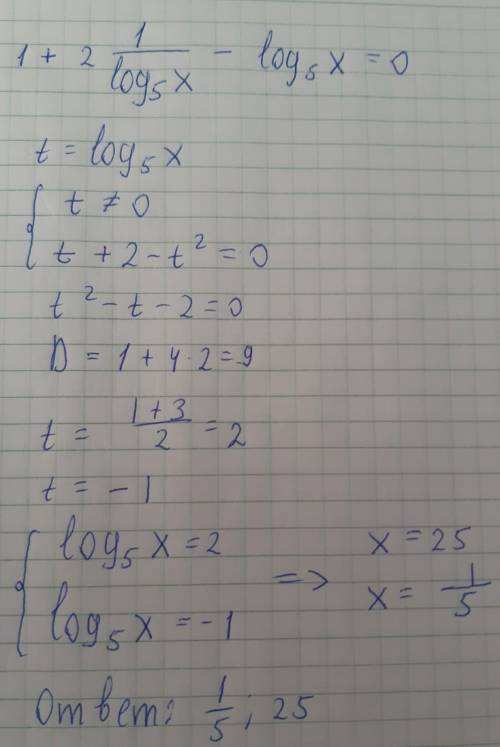 1 + 2 1/log₅x - log₅x = 0
t = log₅x
{ t ≠ 0
t + 2 - t² = 0
t² - t - 2 = 0
D = 1 + 4·2 = 9
t = (1+3)/2 = 2
t = -1
{ log₅x = 2 => x = 25
log₅x = -1 x = 1/5
Ответ: 1/5; 25